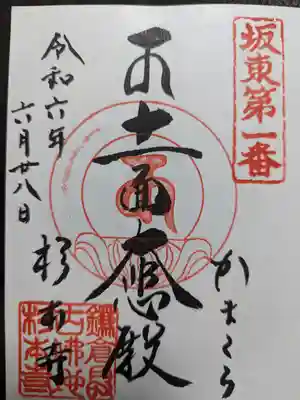 坂東第一番
かまくら
十一面大悲殿
杉本寺
令和六年
六月廿八日
鎌倉最
古佛地
杉本寺